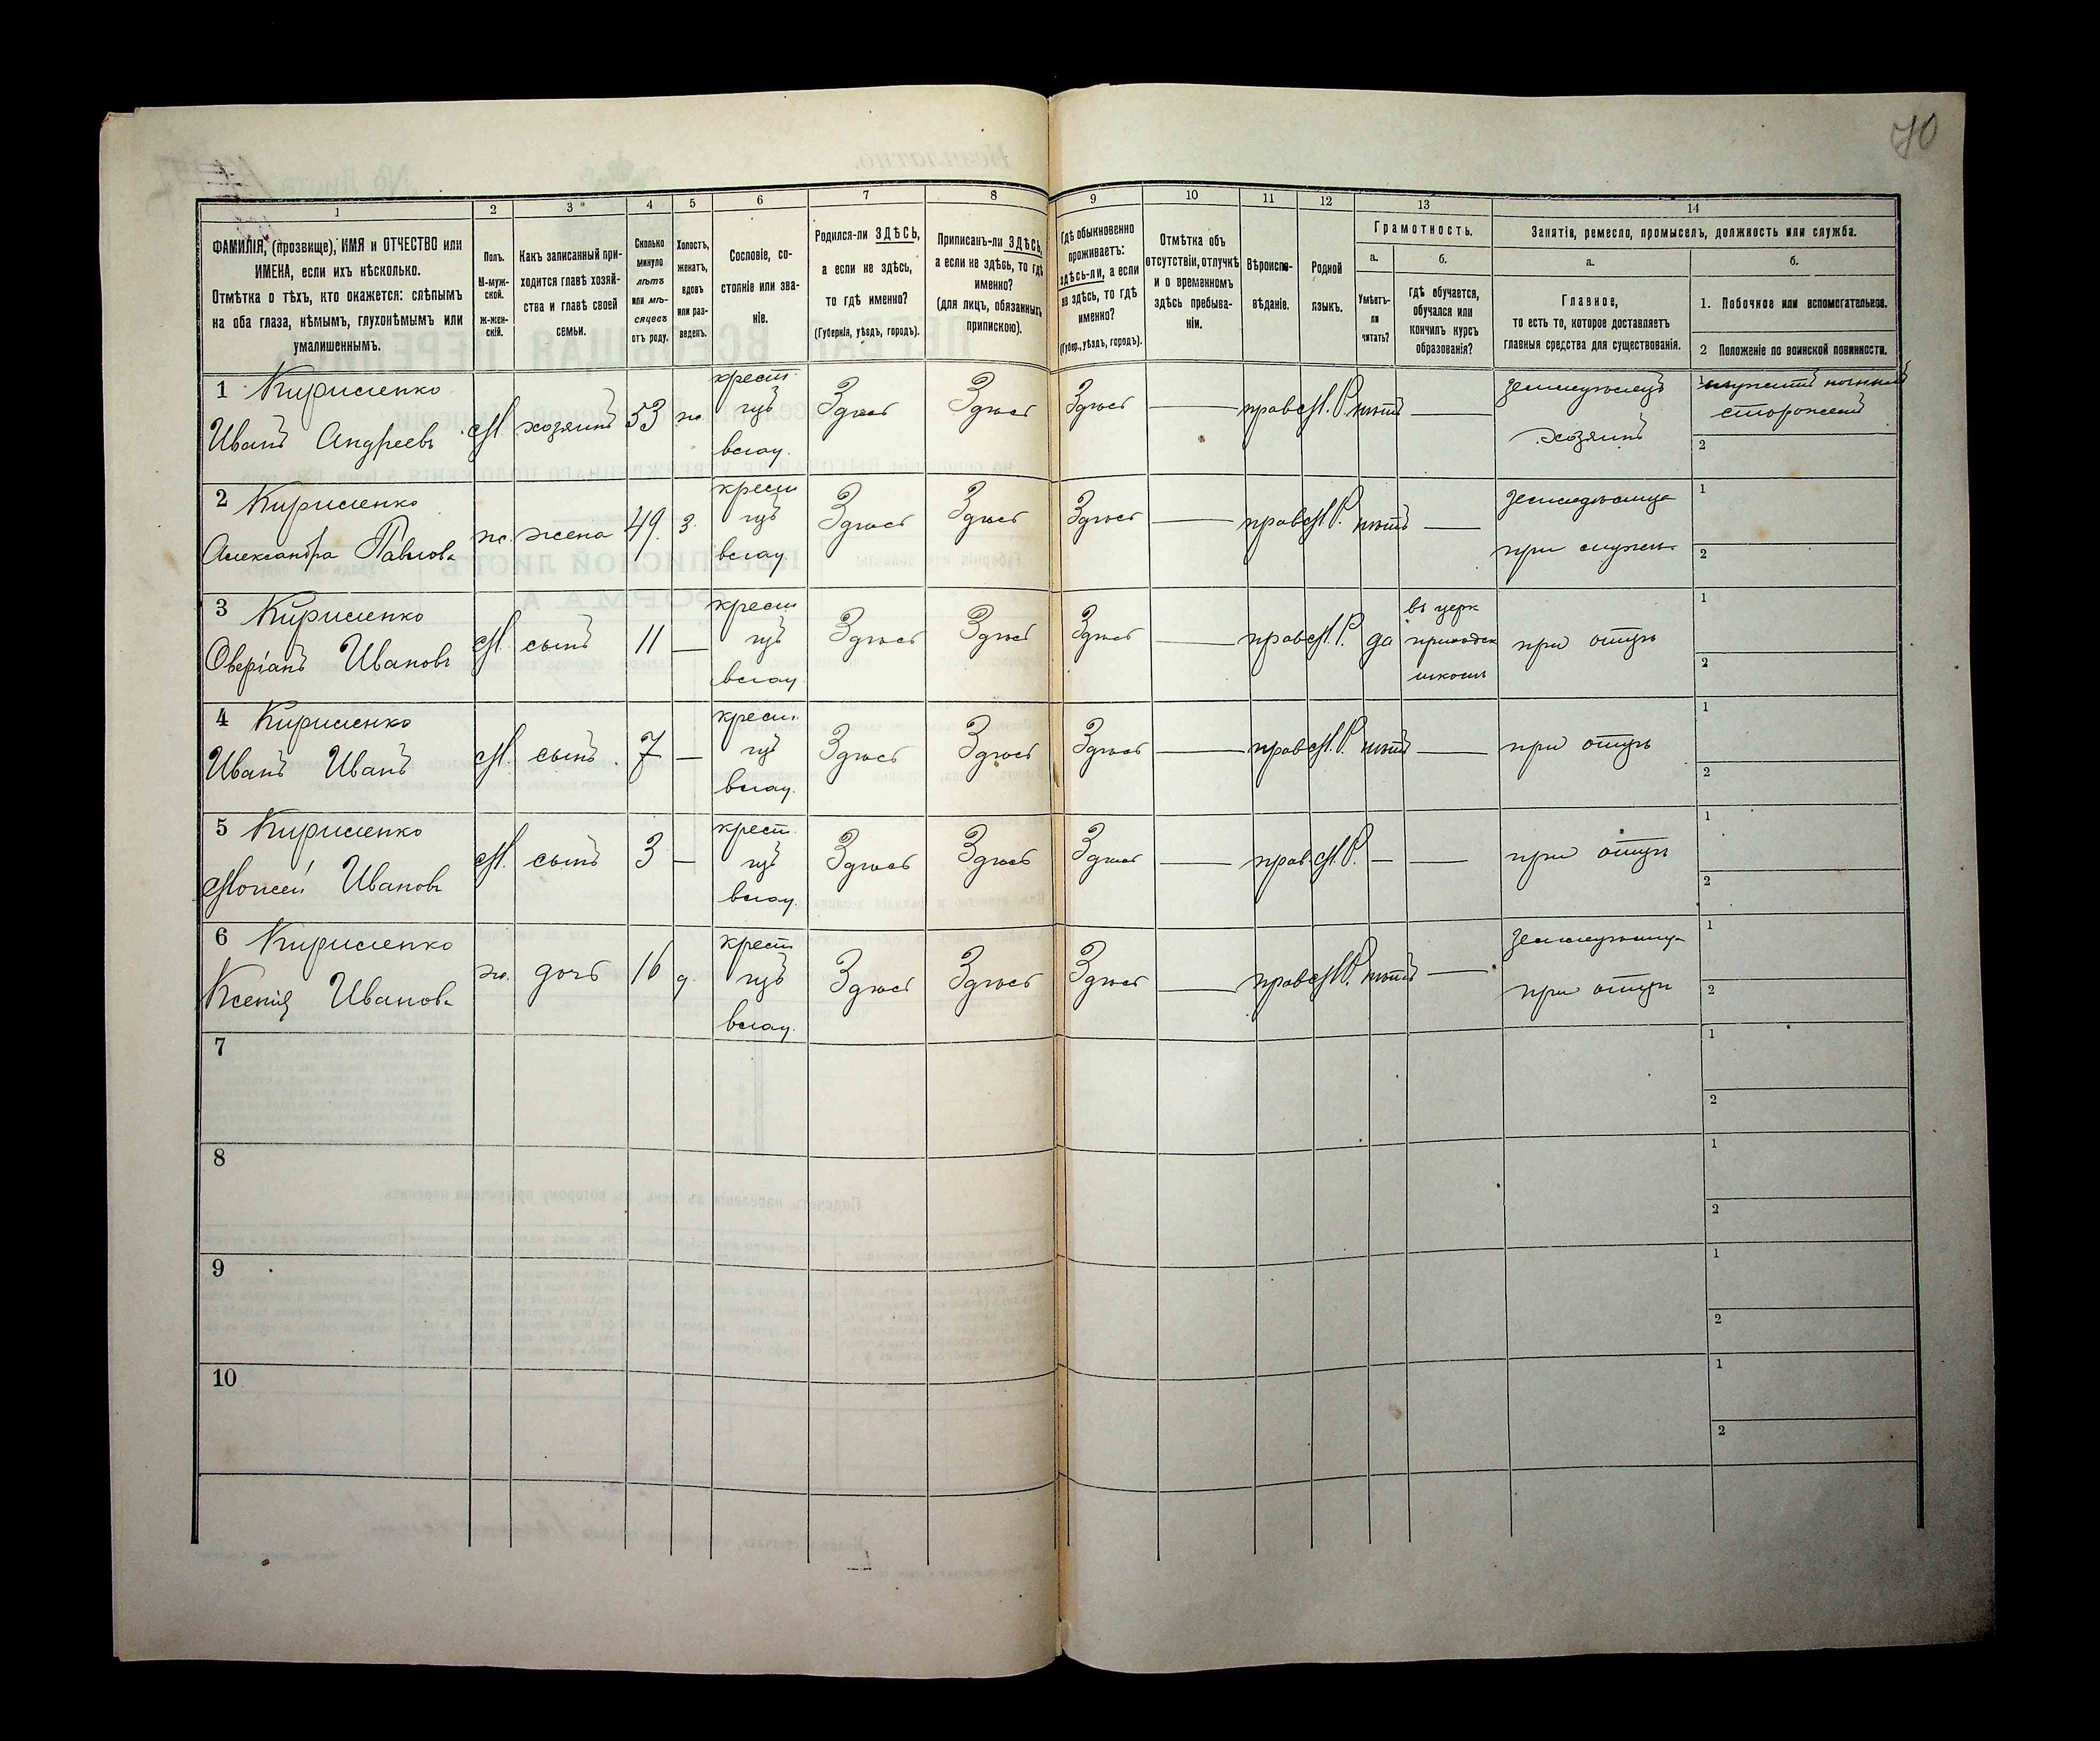 70
1 2 3 4 5 6 7 8 9 10 11 12 13 14
ФАМИЛІЯ, (прозвище), ИМЯ и ОТЧЕСТВО или
ИМЕНА, если ихъ нѣсколько.
Отмѣтка о тѣхъ, кто окажется: слѣпымъ
на оба глаза, нѣмымъ, глухонѣмымъ или
умалишеннымъ.
Полъ.
М-муж-
ской.
Ж-жен-
скій.
Какъ записанный при-
ходится главѣ хозяй-
ства и главѣ своей
семьи.
Сколько
минуло
лѣтъ
или мѣ-
сяцевъ
отъ роду.
Холостъ,
женатъ,
вдовъ
или раз-
веденъ.
Сословіе, со-
стояніе или зва-
ніе.
Родился-ли ЗДѢСЬ,
а если не здѣсь,
то гдѣ именно?
(Губернія, уѣздъ, городъ).
Приписанъ-ли ЗДѢСЬ,
а если не здѣсь, то гдѣ
именно?
(для лицъ, обязанныхъ
припискою).
Гдѣ обыкновенно
проживаетъ:
здѣсь-ли, а если
не здѣсь, то гдѣ
именно?
(Губер., уѣздъ, городъ).
Отмѣтка объ
отсутствіи, отлучкѣ
и о временномъ
здѣсь пребыва-
ніи.
Вѣроиспо-
вѣданіе.
Родной
языкъ.
Грамотность.
а.
Умѣетъ-
ли
читать?
б.
гдѣ обучается,
обучался или
кончилъ курсъ
образованія?
Занятія, ремесло, промыселъ, должность или служба.
а.
Главное,
то есть то, которое доставляетъ
главныя средства для существованія.
б.
1. Побочное или вспомогательное.
2 Положеніе по воинской повинности.
1 Кириленко крест. земледѣлецъ 1 служитъ ночнымъ
Иванъ Андреевъ М хозяинъ 53 ж. Здѣсь Здѣсь Здѣсь — прав. М.Р. нѣтъ — хозяинъ сторожемъ
2
2 Кириленко крест земледѣлица 1
Александра Павлова ж. жена 49. з. Здѣсь Здѣсь Здѣсь — прав М.Р. нѣтъ — при мужѣ 2
3 Кириленко крест въ церк 1
Оверіанъ Ивановъ М. сынъ 11 — Здѣсь Здѣсь Здѣсь — прав М.Р. да приходск при отцѣ 2
школѣ
4 Кириленко крест. 1
Иванъ Иванъ М. сынъ. 7 — Здѣсь Здѣсь Здѣсь — прав М.Р. нѣтъ — при отцѣ 2
5 Кириленко крест. 1
Моисей Ивановъ М. сынъ 3 — Здѣсь Здѣсь Здѣсь — прав. М.Р. — — при отцѣ 2
6 Кириленко крест земледѣлица 1
Ксенія Иванова ж. дочь 16 д. Здѣсь Здѣсь Здѣсь — прав М.Р. нѣтъ — при отцѣ 2
7 1
2
8 1
2
9 1
2
10 1
2